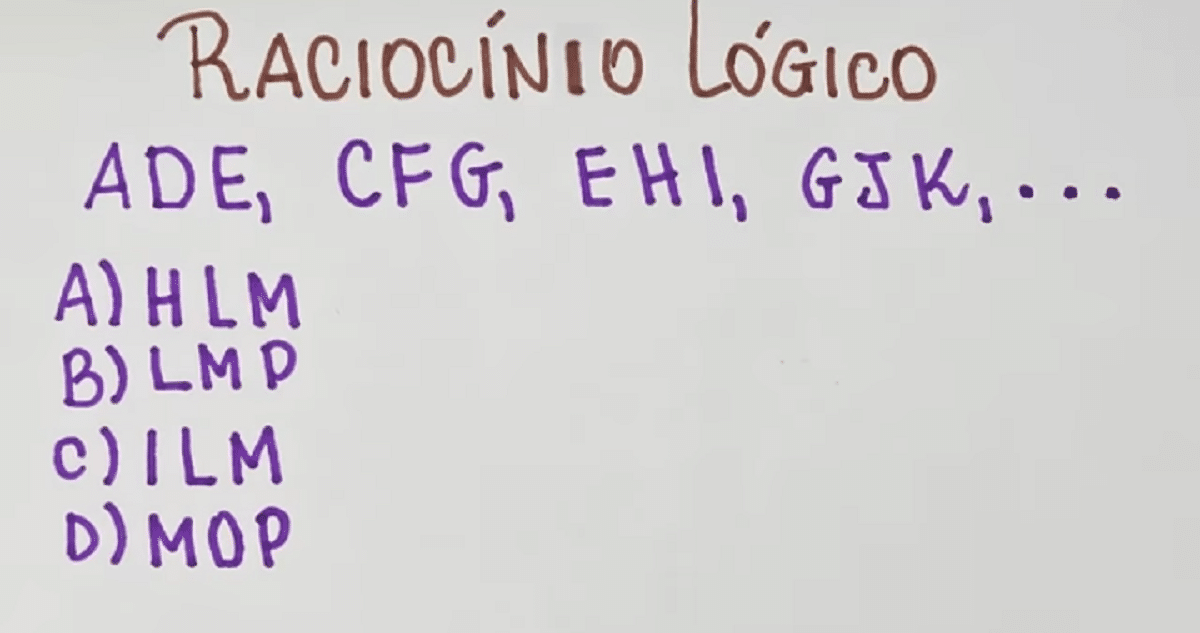 RACIOCÍNIO LÓGICO
ADE, CFG, EHI, GJK, ...
A) HLM
B) LMP
C) ILM
D) MOP